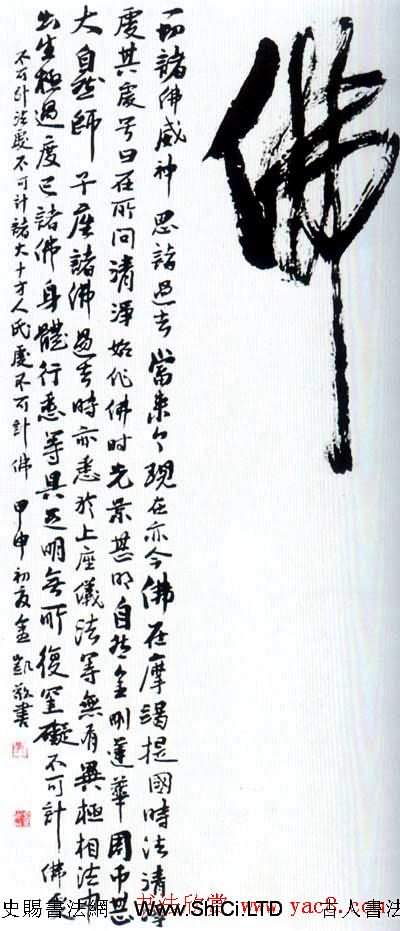 佛
一切諸佛威神恩諸過去當來今現在亦今佛在摩竭提國時法清淨
處其處号曰在所问清淨始作佛时光景甚明自然金刚蓮華周帀甚
大自然師子座諸佛過去時亦悉於上座儀法等無有異極相法
出生極過度已諸佛身體行悉等具足明無所復罣礙不可計佛
不可计法處不可計諸大十方人民處不可計佛 甲申初夏 凱敬書
史賜書法網 www.ShiCi.LTD 古人書法
书法欣赏 www.yac8.com